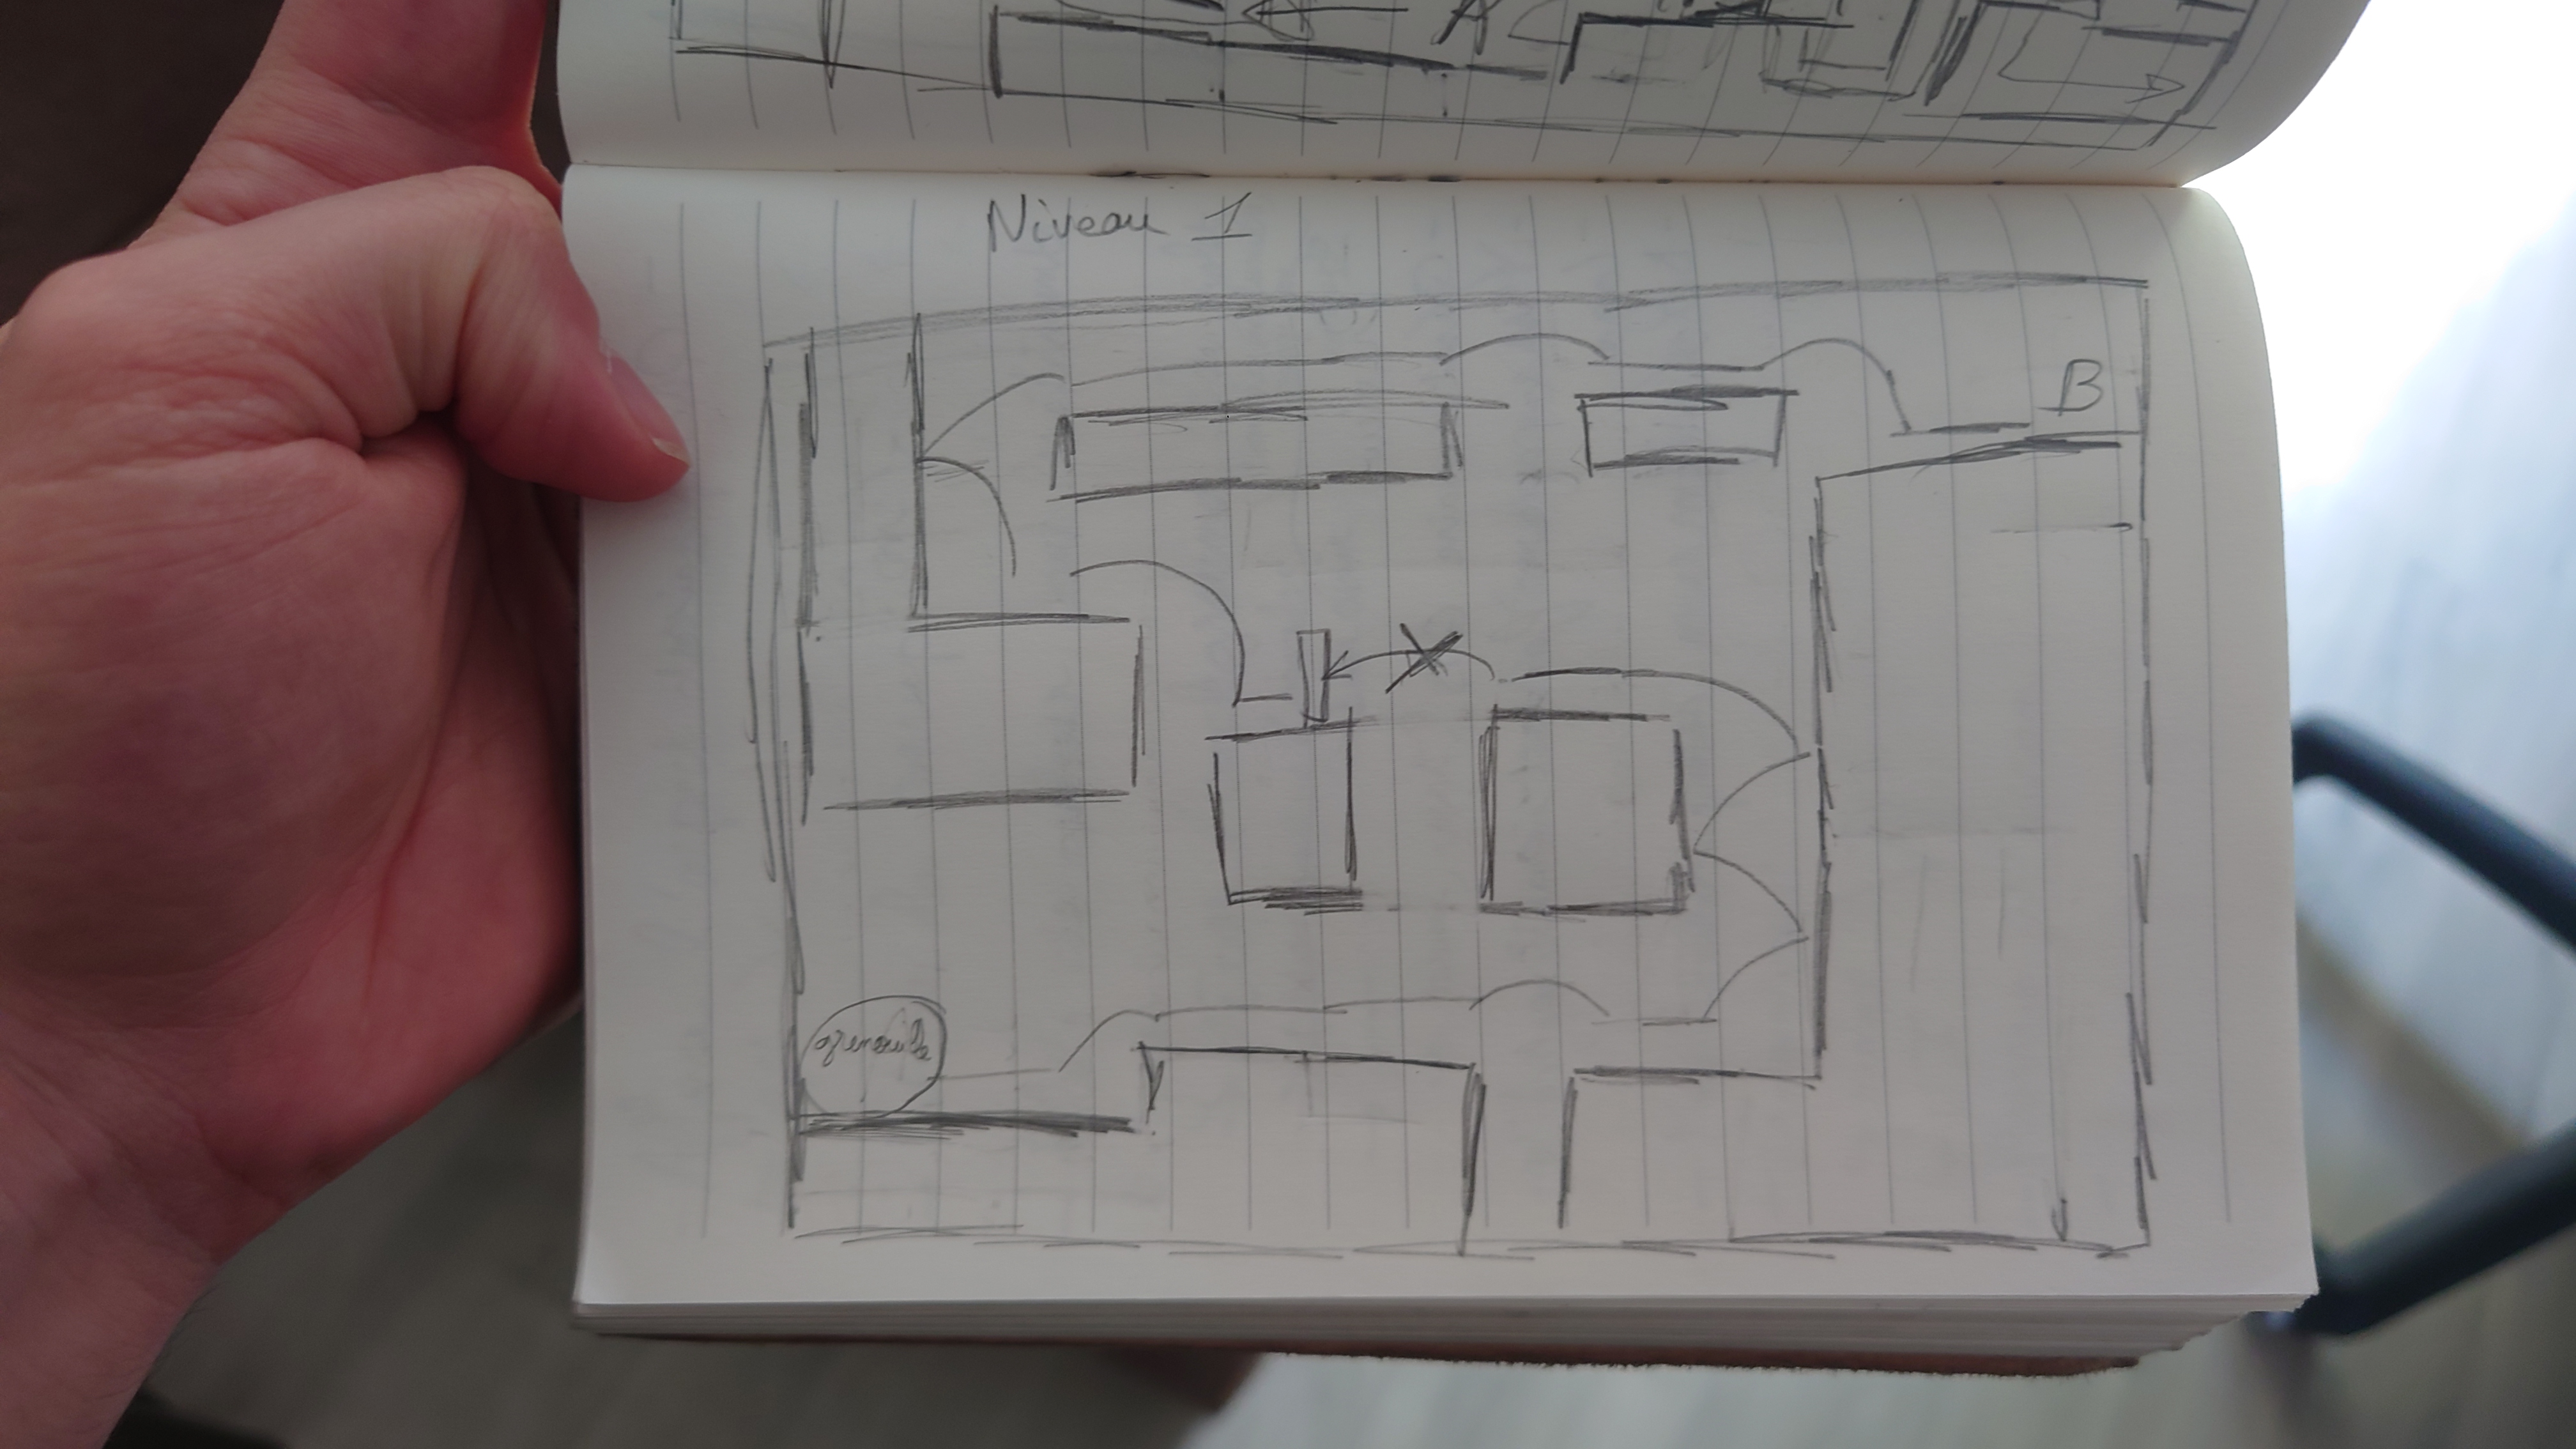 A
Niveau 1
B
grenouille